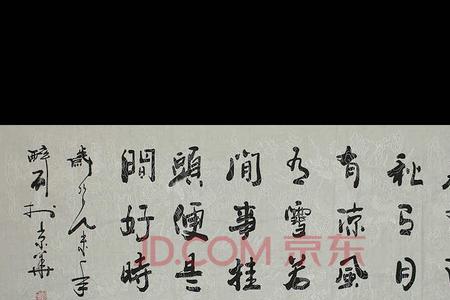 秋有月
有涼風
有雪若
閒事挂
頭便是
間好時
歲次癸未年
醉石於京華
JD.COM 京东